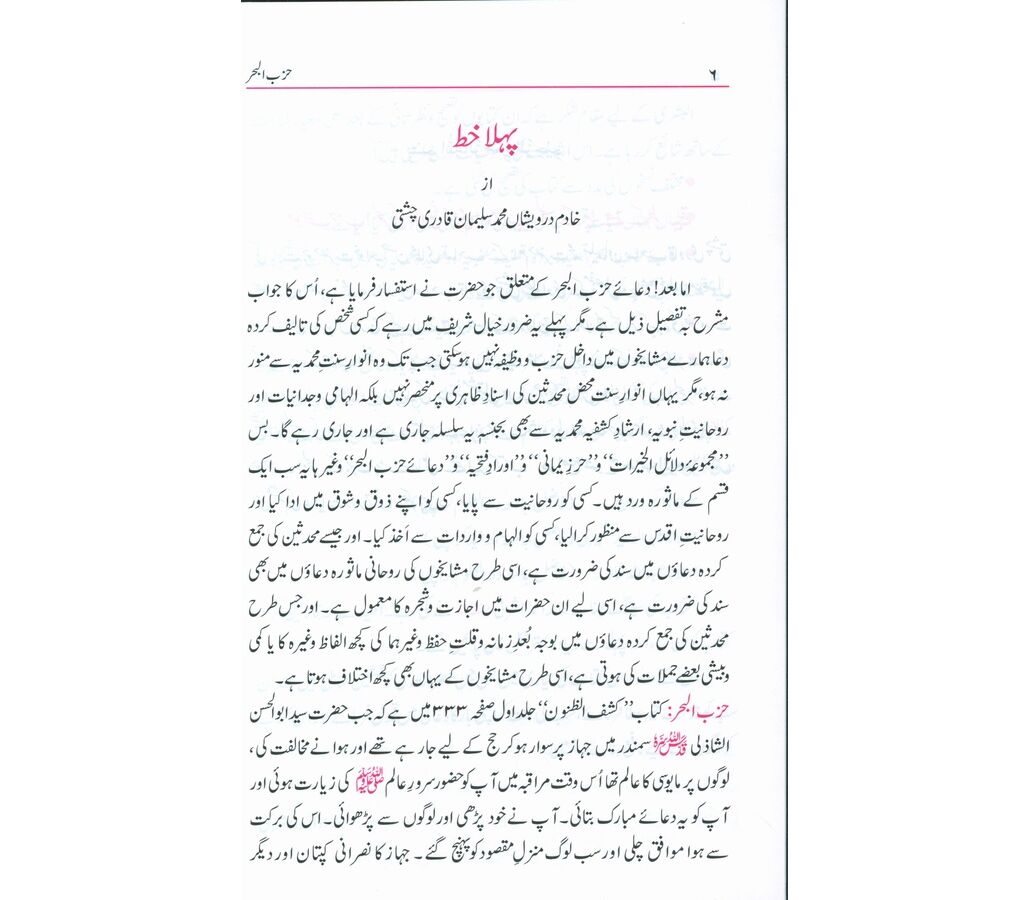 ۶ حزب البحر
پہلا خط
از
خادم درویشاں محمد سلیمان قادری چشتی
اما بعد! دعائے حزب البحر کے متعلق جو حضرت نے استفسار فرمایا ہے، اُس کا جواب
مشرح بہ تفصیل ذیل ہے۔ مگر پہلے یہ ضرور خیال شریف میں رہے کہ کسی شخص کی تالیف کردہ
دعا ہمارے مشایخوں میں داخل حزب و وظیفہ نہیں ہوسکتی جب تک وہ انوارِ سنتِ محمدیہ سے منور
نہ ہو، مگر یہاں انوارِ سنت محض محدثین کی اسنادِ ظاہری پر منحصر نہیں بلکہ الہامی وجدانیات اور
روحانیتِ نبویہ، ارشادِ کشفیہ محمدیہ سے بھی بجنسہٖ یہ سلسلہ جاری ہے اور جاری رہے گا۔ بس
’’مجموعۂ دلائل الخیرات‘‘ و’’حرزِ یمانی‘‘ و’’اورادِ فتحیہ‘‘ و’’دعائے حزب البحر‘‘ وغیرہا یہ سب ایک
قسم کے ماثورہ ورد ہیں۔ کسی کو روحانیت سے پایا، کسی کو اپنے ذوق و شوق میں ادا کیا اور
روحانیتِ اقدس سے منظور کرالیا، کسی کو الہام و واردات سے اَخذ کیا۔ اور جیسے محدثین کی جمع
کردہ دعاؤں میں سند کی ضرورت ہے، اسی طرح مشایخوں کی روحانی ماثورہ دعاؤں میں بھی
سند کی ضرورت ہے، اسی لیے ان حضرات میں اجازت و شجرہ کا معمول ہے۔ اور جس طرح
محدثین کی جمع کردہ دعاؤں میں بوجہ بُعدِ زمانہ و قلتِ حفظ وغیرہما کی کچھ الفاظ وغیرہ کا یا کمی
و بیشی بعضے جملات کی ہوتی ہے، اسی طرح مشایخوں کے یہاں بھی کچھ اختلاف ہوتا ہے۔
حزب البحر: کتاب ’’کشف الظنون‘‘ جلد اول صفحہ ۳۳۳ میں ہے کہ جب حضرت سید ابوالحسن
الشاذلی قدس اللہ سرہٗ سمندر میں جہاز پر سوار ہوکر حج کے لیے جارہے تھے اور ہوا نے مخالفت کی،
لوگوں پر مایوسی کا عالم تھا اُس وقت مراقبہ میں آپ کو حضور سرورِ عالم ﷺ کی زیارت ہوئی اور
آپ کو یہ دعائے مبارک بتائی۔ آپ نے خود پڑھی اور لوگوں سے پڑھوائی۔ اس کی برکت
سے ہوا موافق چلی اور سب لوگ منزلِ مقصود کو پہنچ گئے۔ جہاز کا نصرانی کپتان اور دیگر